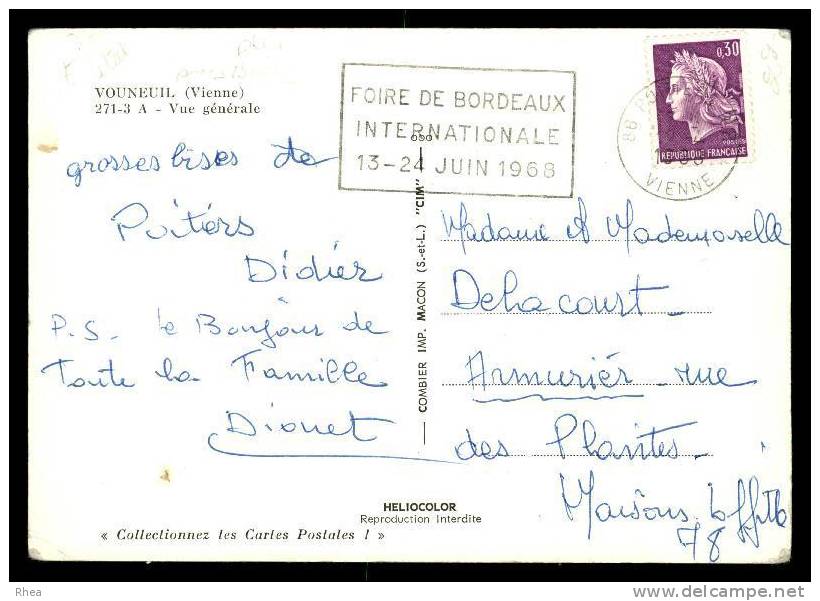 VOUNEUIL (Vienne)
271-3 A - Vue générale
grosses bises de
Poitiers
Didier
P.S. le Bonjour de
Toute la Famille
Dionet
FOIRE DE BORDEAUX
INTERNATIONALE
13-24 JUIN 1968
0,30
POSTES
REPUBLIQUE FRANÇAISE
86
VIENNE
COMBIER IMP. MACON (S.-et-L.) "CIM"
Madame & Mademoiselle
Delacourt
Armurier - rue
des Plantes -
Maisons Laffitte
78
HELIOCOLOR
Reproduction Interdite
« Collectionnez les Cartes Postales ! »
Rhea
delcampe.net